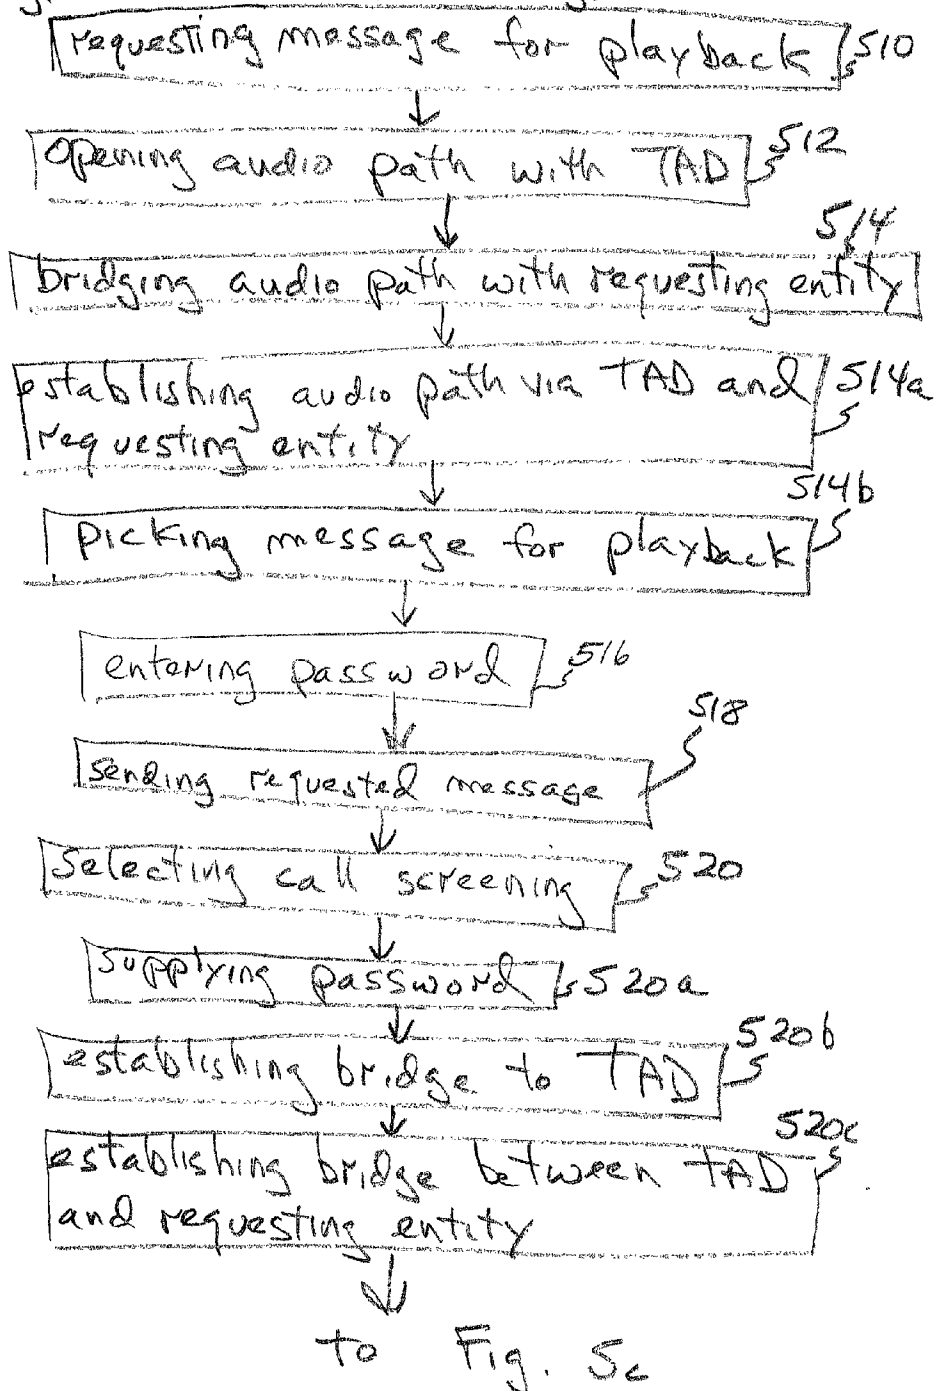 requesting message for playback 510
opening audio path with TAD 512
514
bridging audio path with requesting entity
establishing audio path via TAD and 514a
requesting entity
514b
picking message for playback
entering password 516
518
sending requested message
selecting call screening 520
supplying password 520a
520b
establishing bridge to TAD
520c
establishing bridge between TAD
and requesting entity
to Fig. 5c